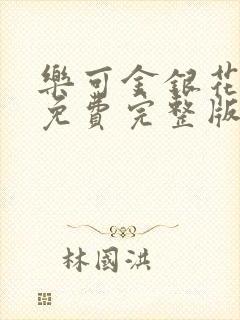 樂可金銀花
免費完整版
林國洪